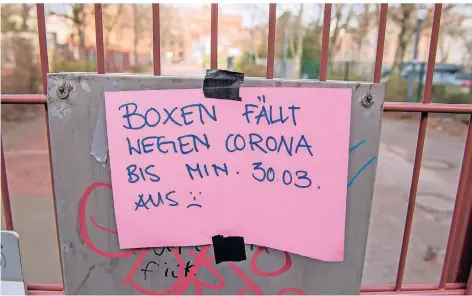 BOXEN FÄLLT
WEGEN CORONA
BIS MIN. 30.03.
AUS :(
fick